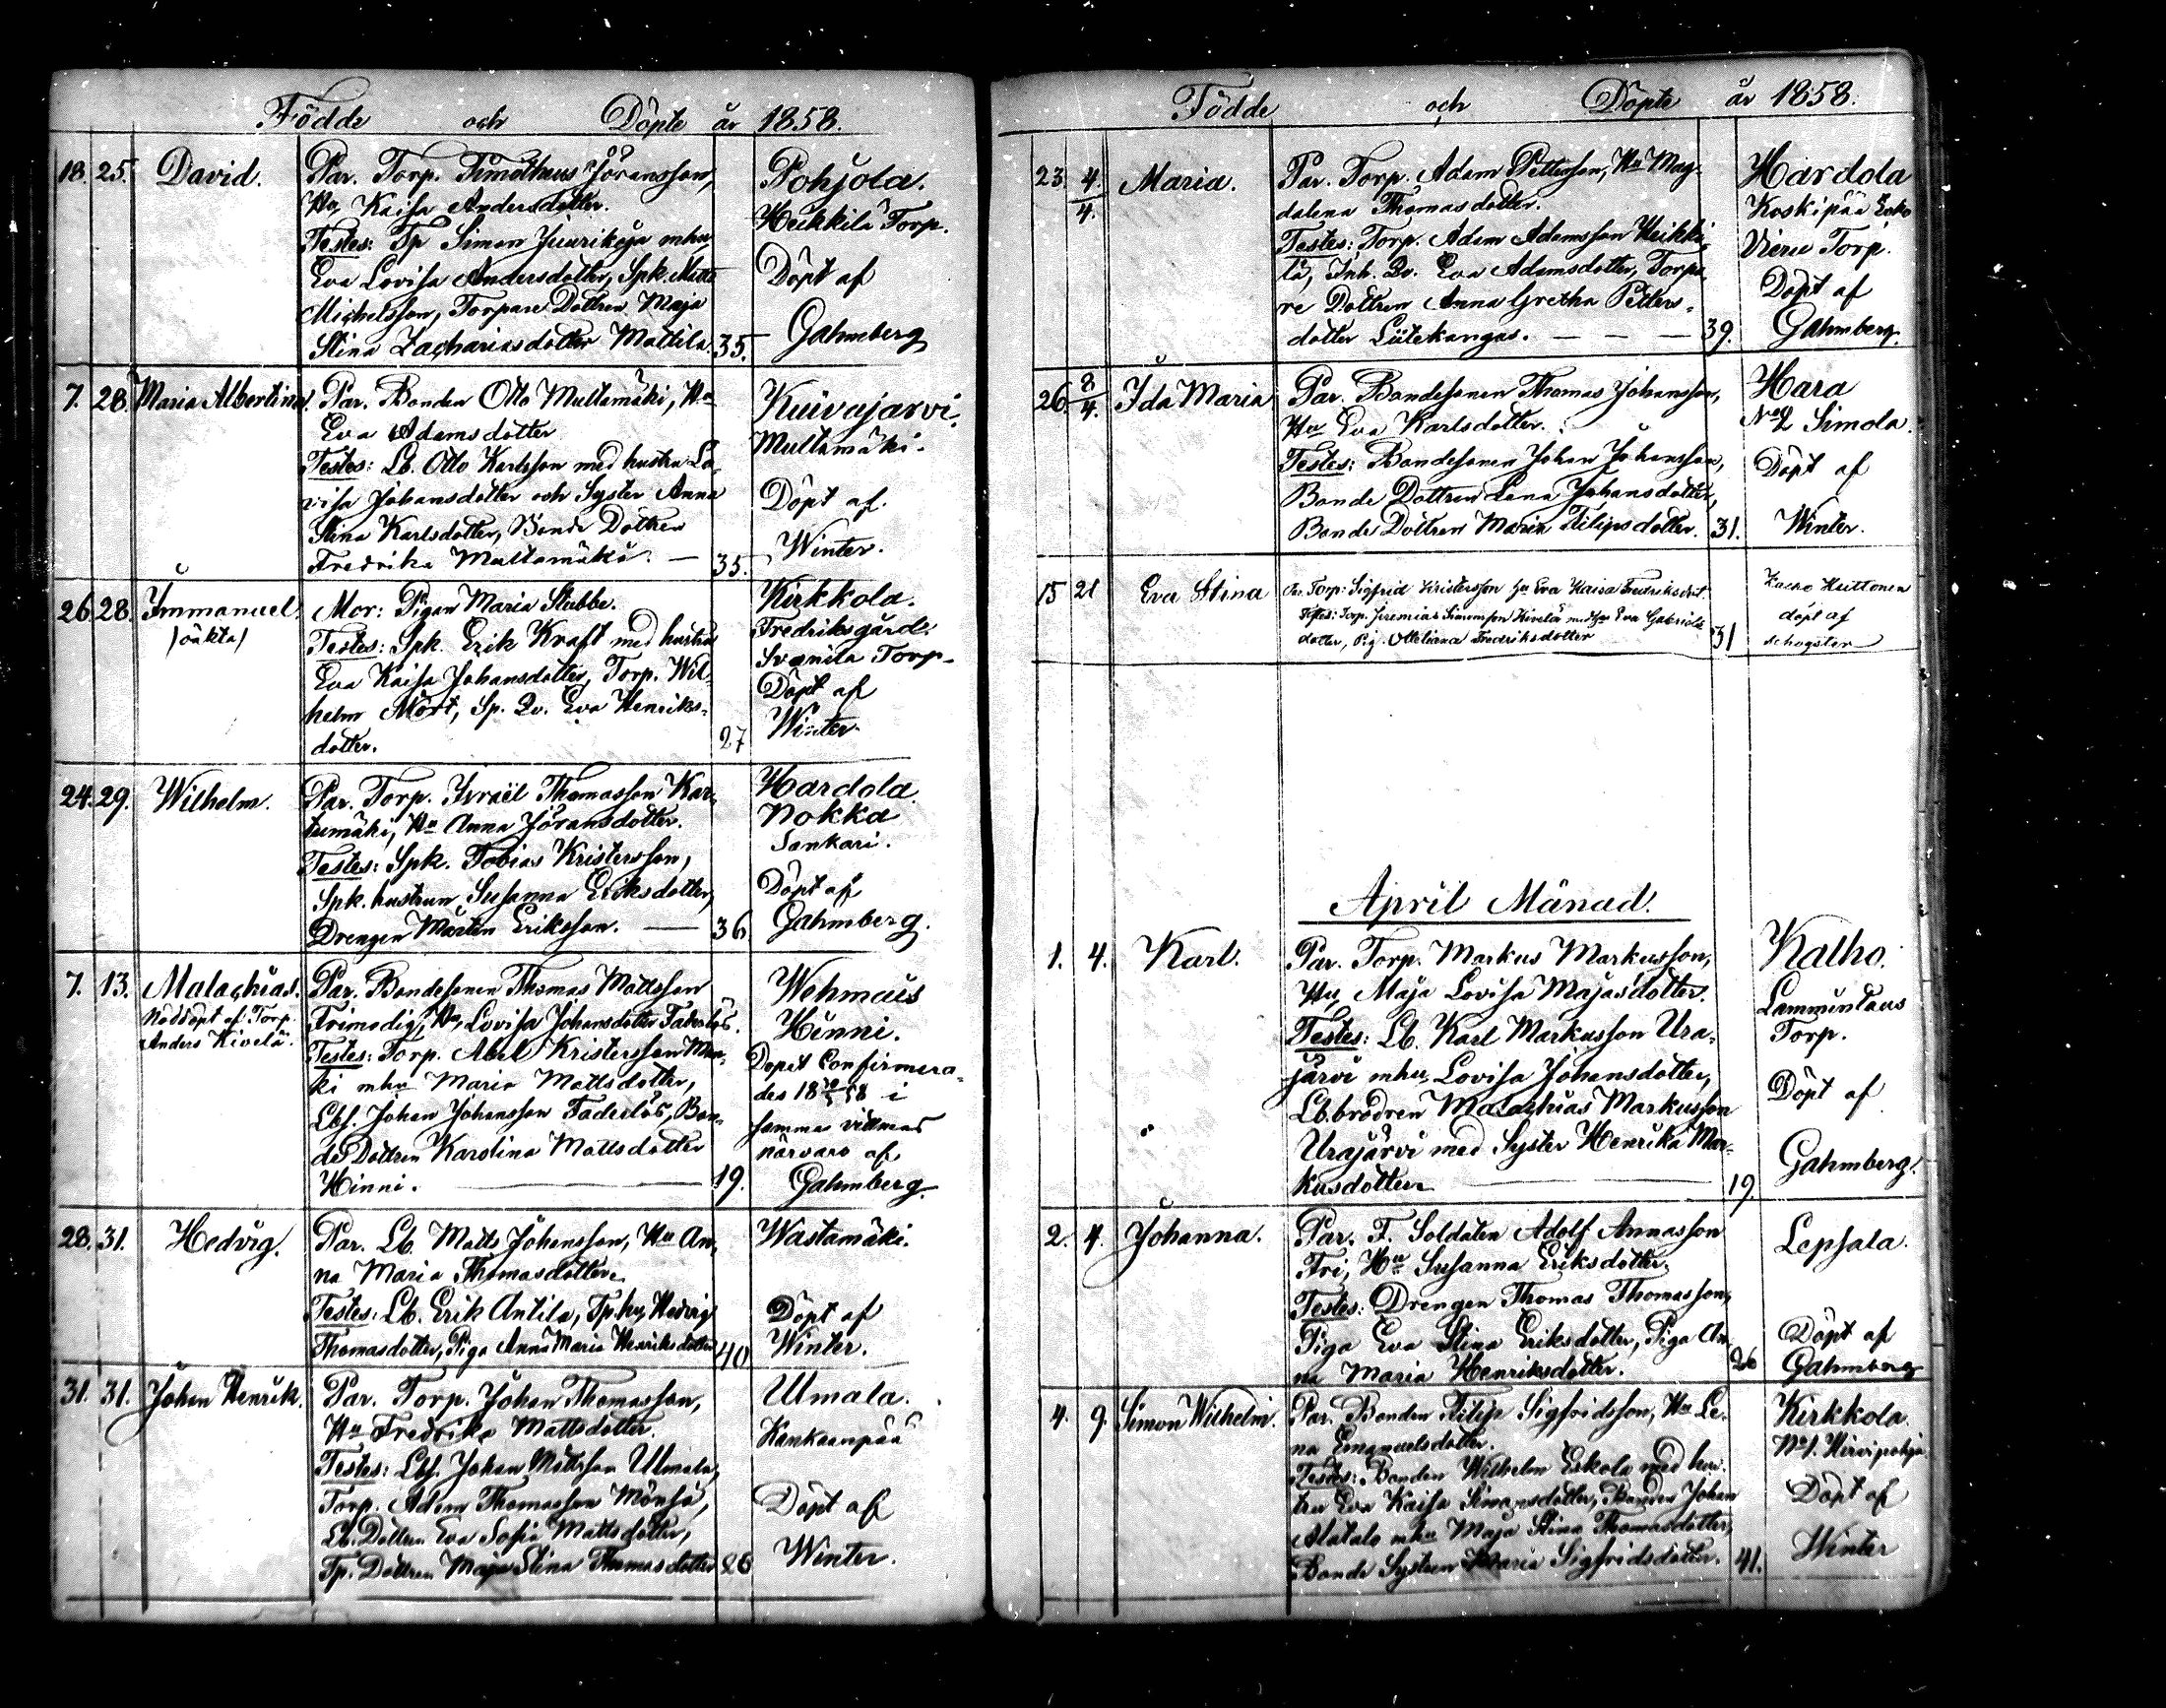 Födde och Döpte år 1858.
18. 25. David. Par. Torp. Timotheus Jöransson, Pohjola.
Hu, Kaisa Andersdotter. Heikkilä Torp.
Testes: Tp Simon Juurikoja mhu,
Eva Lovisa Andersdotter, Spk. Matts Döpt af
Michelsson, Torpare Dottren Maja
Stina Zachariasdotter Mattila. 35. Gahmberg
7. 28. Maria Albertina. Par. Bonden Otto Multamäki, Hu Kuivajärvi.
Eva Adamsdotter Multamäki.
Testes: Lb. Otto Karlsson med hustru Lo-
visa Johansdotter och Syster Anna Döpt af.
Stina Karlsdotter, Bonde Dottren
Fredrika Multamäki. — 35. Winter.
26. 28. Immanuel. Mor: Pigan Maria Stubbe. Kirkkola.
/oäkta/ Testes: Spk. Erik Kraft med hustru Fredriksgård.
Eva Kaisa Johansdotter, Torp. Wil- Torp.
helm Mört, Sp. Qv. Eva Henriks- Döpt af
dotter. 27 Winter.
24. 29. Wilhelm. Par. Torp. Israël Thomasson Kar- Hardola.
tumäki, Hu Anna Jöransdotter. Nokka
Testes: Spk. Tobias Kristersson, Sankari.
Spk. hustrun Susanna Eriksdotter, Döpt af
Drengen Mårten Eriksson. — 36 Gahmberg.
7. 13. Malachias. Par. Bondesonen Thomas Mattsson Wehmais
Nöddöpt af Torp. Frimodig, Hu, Lovisa Johansdotter Faderlös. Hinni.
Anders Kivelä. Testes: Torp. Abel Kristersson Dopet Confirmera-
ki mhu Maria Mattsdotter, des i
Lbs. Johan Johansson Faderlös, Bon- samma vittnes
de Dottren Karolina Mattsdotter närvaro af
Hinni. — 19. Gahmberg.
28. 31. Hedvig. Par. Lb. Matts Johansson, Hu An- Wastamäki.
na Maria Thomasdotter.
Testes: Lb. Erik Antila, Tp. hu, Hedvig Döpt af
Thomasdotter, Piga Anna Maria Henriksdotter 40 Winter.
31. 31. Johan Henrik. Par. Torp. Johan Thomasson, Umala.
Hu Fredrika Mattsdotter. Kankaanpää
Testes: Lbs. Johan Mattsson Umala,
Torp. Adam Thomasson Mönsä, Döpt af
Lb. Dottren Eva Sofia Mattsdotter,
Tp. Dottren Maja Stina Thomasdotter 26 Winter.
Födde och Döpte år 1858.
23. 4./4. Maria. Par. Torp. Adam Pettersson, Hu Mag- Hardola
dalena Thomasdotter. Koskipää
Testes: Torp. Adam Adamsson Heikki- Torp.
lä, Inh. Qv. Eva Adamsdotter, Torpa- Döpt af
re Dottren Anna Gretha Petters-
dotter Liitekangas. — — — 39. Gahmberg.
26. 8/4. Ida Maria Par. Bondesonen Thomas Johansson, Hara
Hu Eva Karlsdotter. No 2 Simola.
Testes: Bondesonen Johan Johansson, Döpt af
Bonde Dottren Lena Johansdotter,
Bonde Dottren Maria Filipsdotter. 31. Winter.
15 21 Eva Stina Par. Torp. Sigfrid Kristersson hu Eva Kaisa Fredriksdott. Huttonen
Testes: Torp. Jeremias Simonsson Kivelä med hu Eva Gabriels döpt af
dotter, Pig. Ottiliana Fredriksdotter 31 Schogster
April Månad.
1. 4. Karl. Par. Torp. Markus Markusson, Kalho.
Hu, Maja Lovisa Majasdotter. Lamminlaus
Testes: Lb. Karl Markusson Ura- Torp.
järvi mhu, Lovisa Johansdotter, Döpt af
Lb. brodren Malachias Markusson
Urajärvi med Syster Henrika Mar- Gahmberg.
kusdotter — 19.
2. 4. Johanna. Par. F. Soldaten Adolf Annasson Lepsala.
Fri, Hu Susanna Eriksdotter.
Testes: Drengen Thomas Thomasson,
Piga Eva Stina Eriksdotter, Piga An- Döpt af
na Maria Henriksdotter. 26 Gahmberg
4. 9. Simon Wilhelm. Par. Bonden Filip Sigfridsson, Hu Le- Kirkkola.
na Emanuelsdotter. No 1. Hirvipohja
Testes: Bonden Wilhelm Eskola med hus-
tru Eva Kaisa Simonsdotter, Bonden Johan Döpt af
Alatalo mhu Maja Stina Thomasdotter,
Bonde Systren Maria Sigfridsdotter. 41. Winter